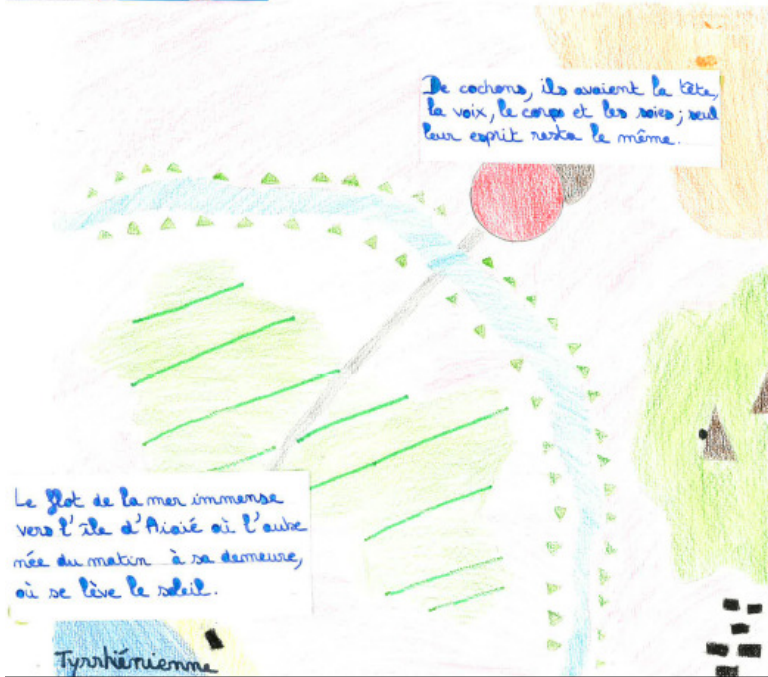 De cochons, ils avaient la tête,
la voix, le corps et les soies ; seul
leur esprit resta le même.
Le flot de la mer immense
vers l'île d'Aiaié où l'aube
née du matin à sa demeure,
où se lève le soleil.
Tyrrhénienne